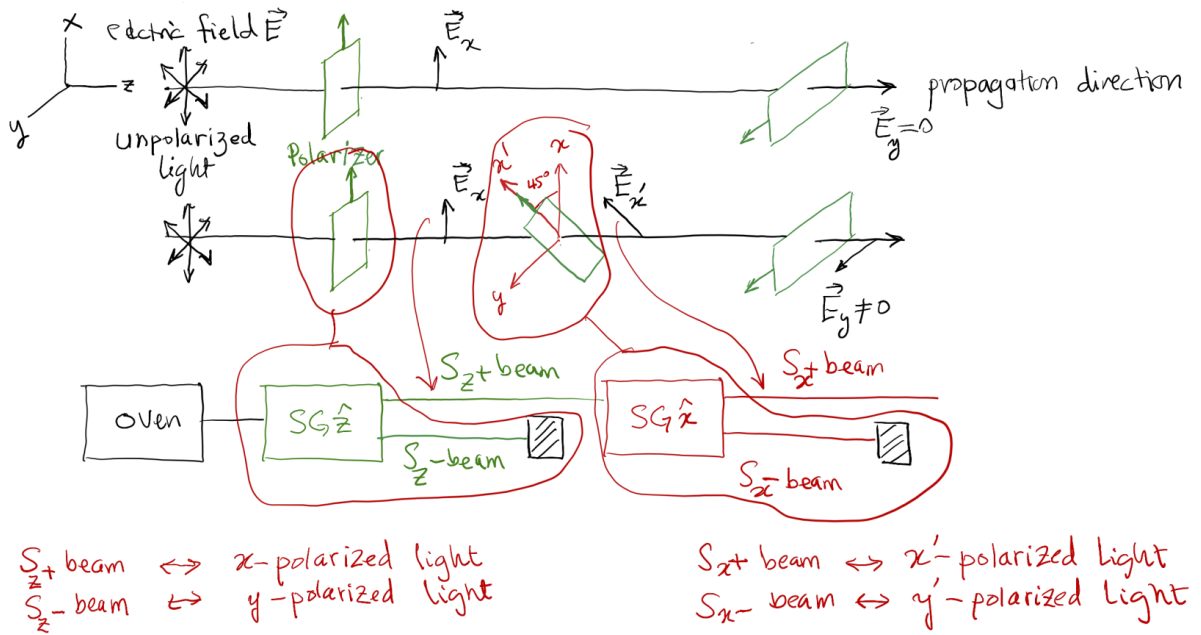 x
electric field E⃗
z
y
unpolarized light
Polarizer
E⃗x
propagation direction
E⃗y=0
E⃗x
x'
45°
x
y
E⃗x'
E⃗y≠0
oven
SGẑ
Sz+ beam
Sz- beam
SGx̂
Sx+ beam
Sx- beam
Sz+ beam ↔ x-polarized light
Sz- beam ↔ y-polarized light
Sx+ beam ↔ x'-polarized light
Sx- beam ↔ y'-polarized light